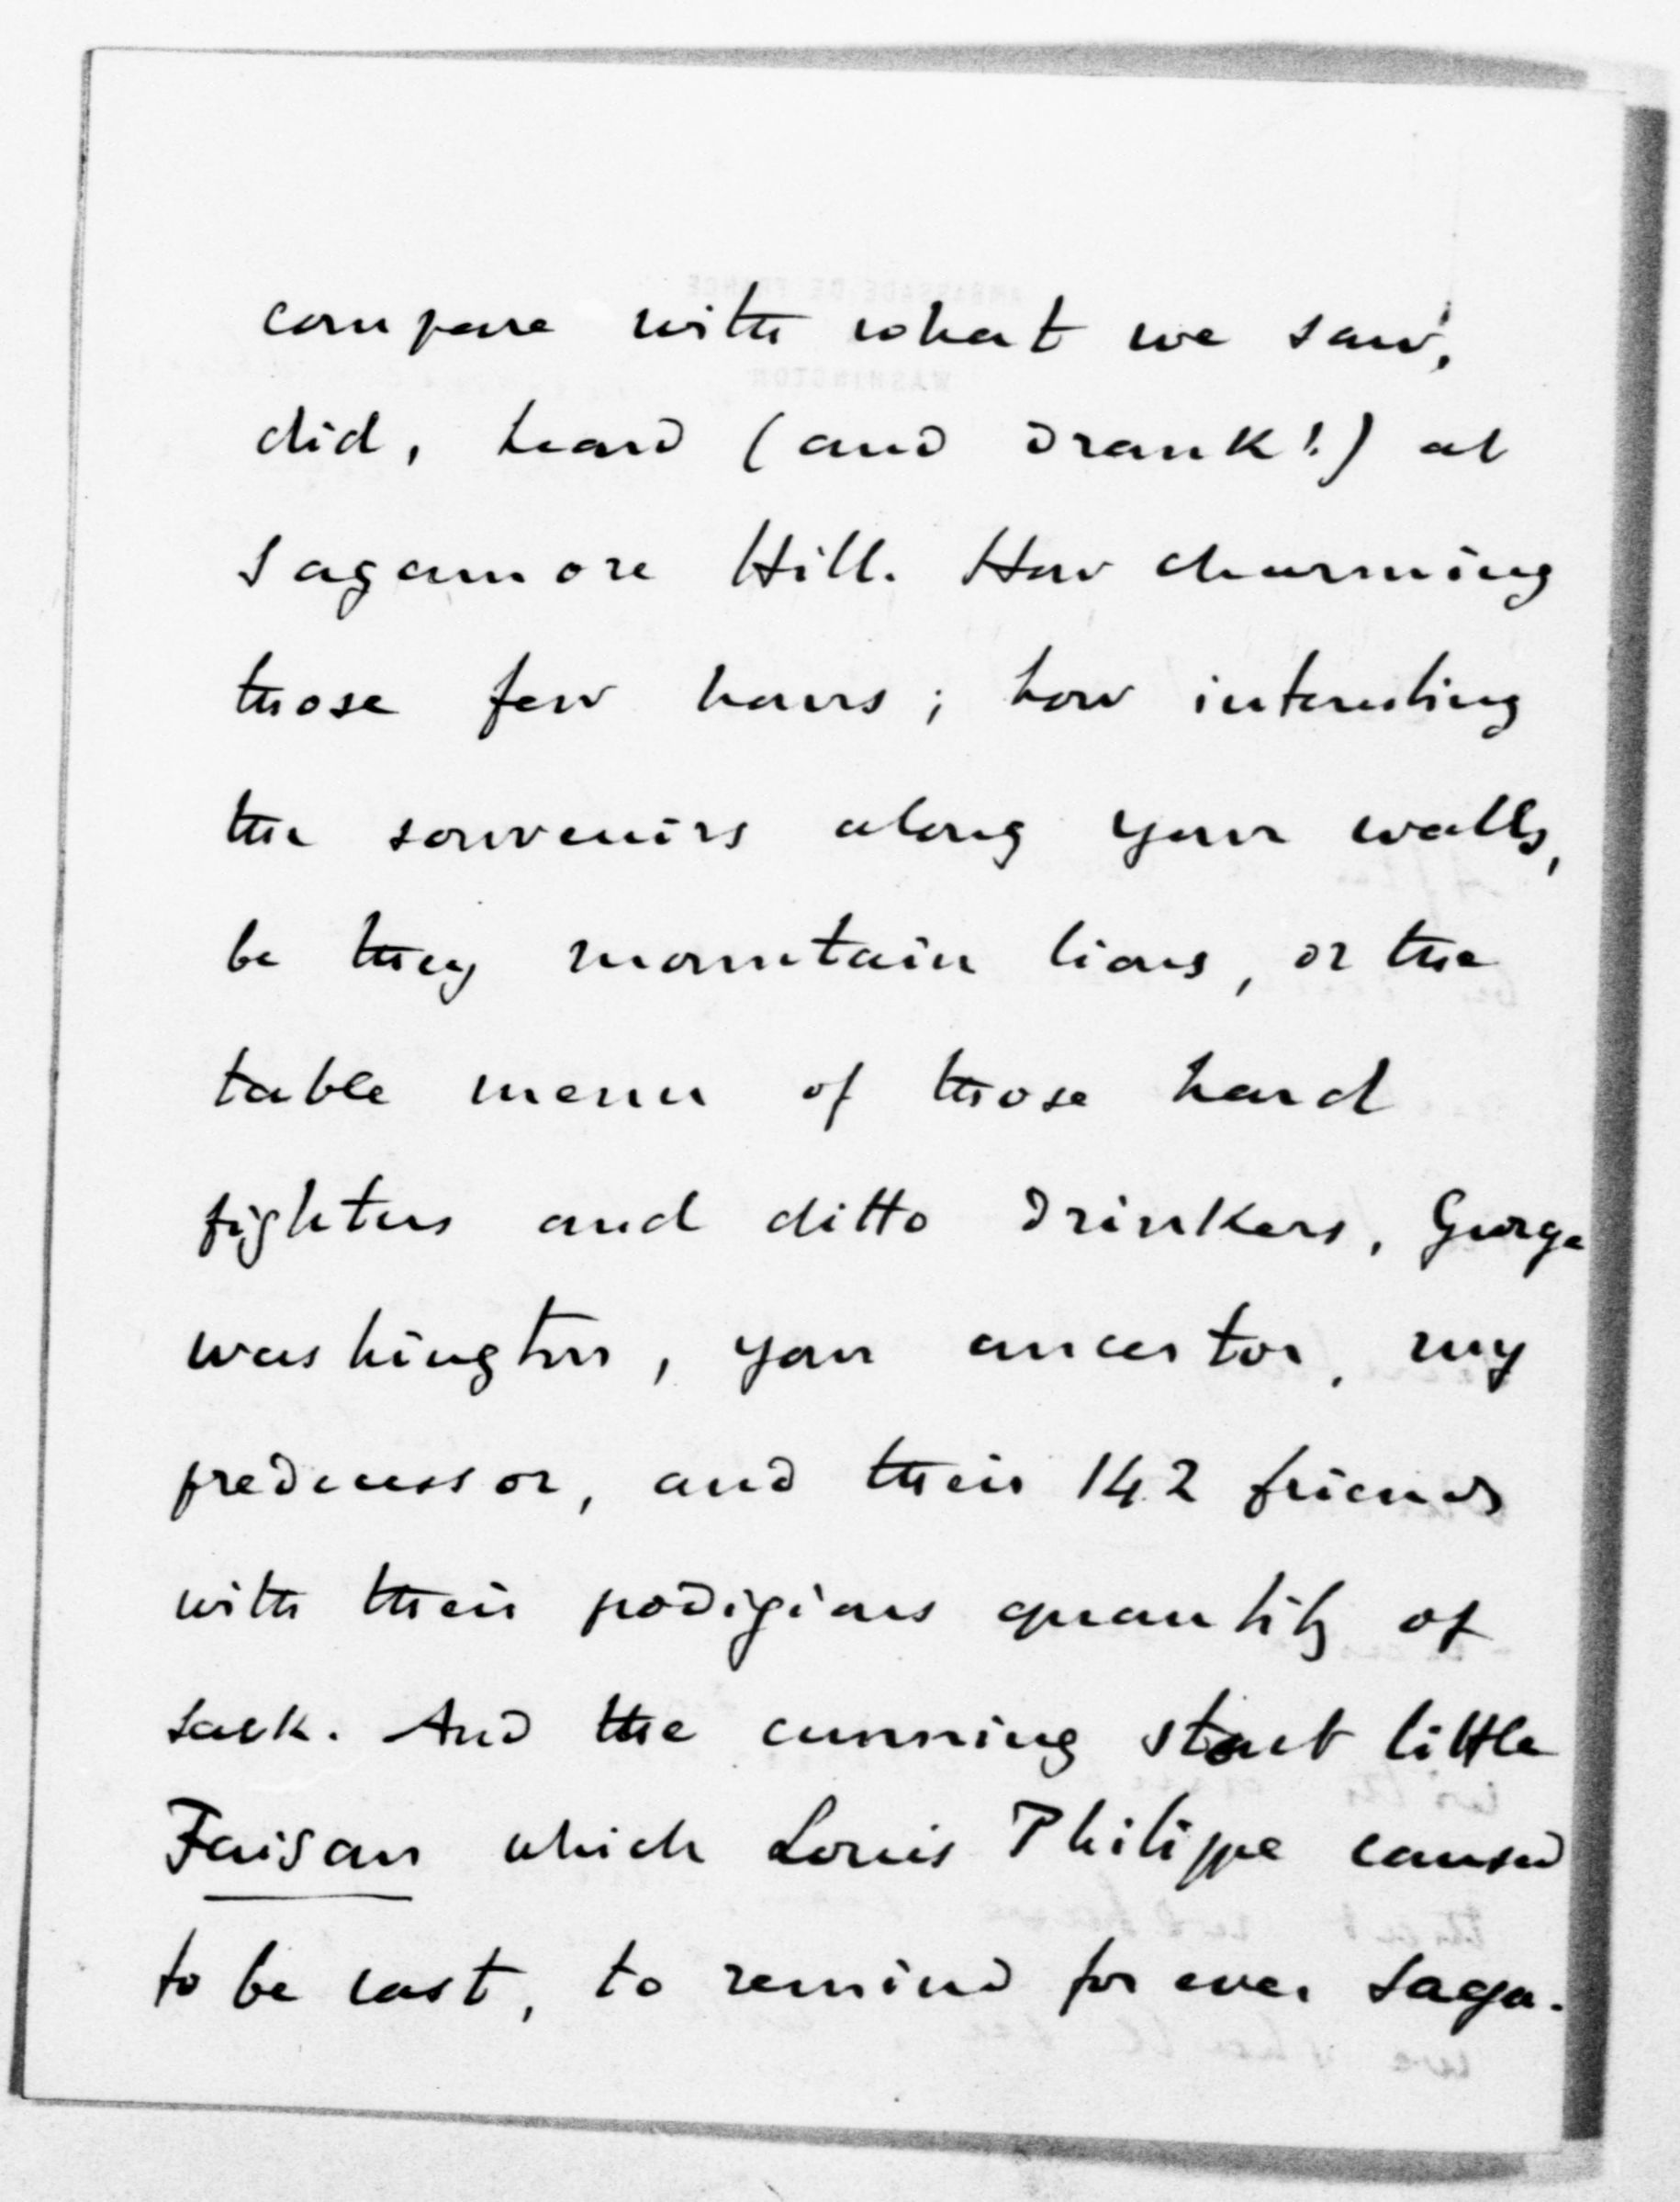 compare with what we saw,
did, heard (and drank!) at
Sagamore Hill. How charming
those few hours; how interesting
the souvenirs along your walls,
be they mountain lions, or the
table menu of those hard
fighters and ditto drinkers, George
Washington, your ancestor, my
predecessor, and their 142 friends
with their prodigious quantity of
sack. And the cunning stout little
Faisan which Louis Philippe caused
to be cast, to remind for ever Saga-